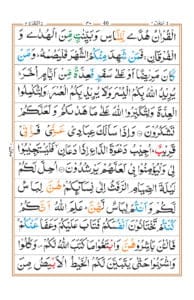 الْقُرْاٰنُ هُدًى لِّلنَّاسِ وَبَيِّنٰتٍ مِّنَ الْهُدٰى وَ
الْفُرْقَانِ ۚ فَمَنْ شَهِدَ مِنْكُمُ الشَّهْرَ فَلْيَصُمْهُ ؕ وَمَنْ
كَانَ مَرِيْضًا اَوْ عَلٰى سَفَرٍ فَعِدَّةٌ مِّنْ اَيَّامٍ اُخَرَ ؕ
يُرِيْدُ اللّٰهُ بِكُمُ الْيُسْرَ وَلَا يُرِيْدُ بِكُمُ الْعُسْرَ وَلِتُكْمِلُوا
الْعِدَّةَ وَلِتُكَبِّرُوا اللّٰهَ عَلٰى مَا هَدٰىكُمْ وَلَعَلَّكُمْ
تَشْكُرُوْنَ وَاِذَا سَاَلَكَ عِبَادِيْ عَنِّيْ فَاِنِّيْ
قَرِيْبٌ ؕ اُجِيْبُ دَعْوَةَ الدَّاعِ اِذَا دَعَانِ فَلْيَسْتَجِيْبُوْا
لِيْ وَلْيُؤْمِنُوْا بِيْ لَعَلَّهُمْ يَرْشُدُوْنَ اُحِلَّ لَكُمْ
لَيْلَةَ الصِّيَامِ الرَّفَثُ اِلٰى نِسَآئِكُمْ ؕ هُنَّ لِبَاسٌ
لَّكُمْ وَاَنْتُمْ لِبَاسٌ لَّهُنَّ ؕ عَلِمَ اللّٰهُ اَنَّكُمْ
كُنْتُمْ تَخْتَانُوْنَ اَنْفُسَكُمْ فَتَابَ عَلَيْكُمْ وَعَفَا عَنْكُمْ
فَالْـٰٔنَ بَاشِرُوْهُنَّ وَابْتَغُوْا مَا كَتَبَ اللّٰهُ لَكُمْ وَكُلُوْا
وَاشْرَبُوْا حَتّٰى يَتَبَيَّنَ لَكُمُ الْخَيْطُ الْاَبْيَضُ مِنَ